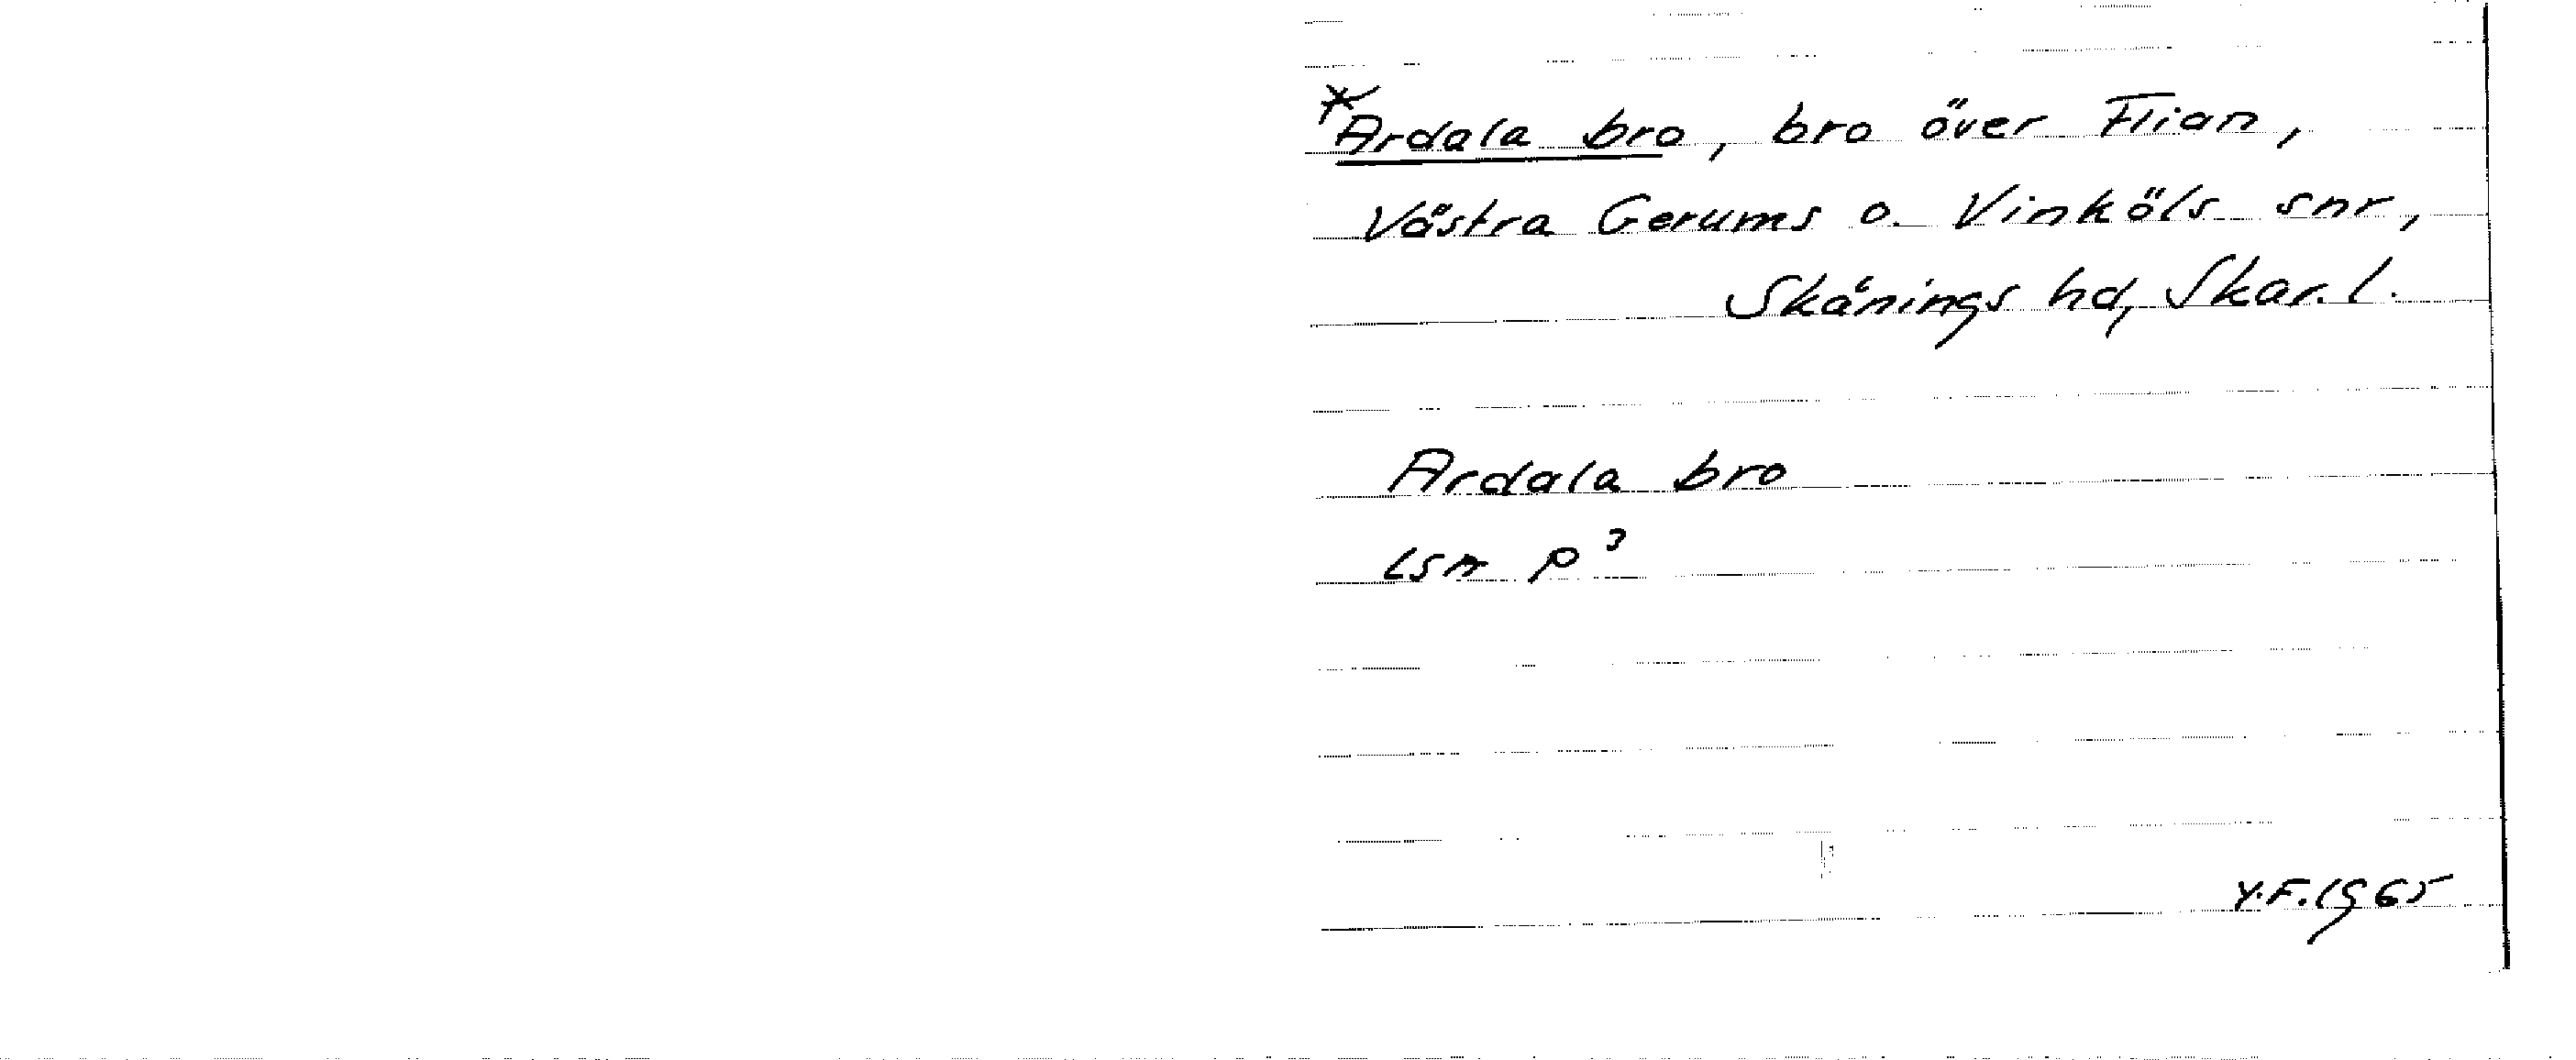 *Ardala bro, bro över Flian,
Västra Gerums o. Vinköls snr,
Skånings hd, Skar. l.
Ardala bro
Lsm P³
Y.F. 1965